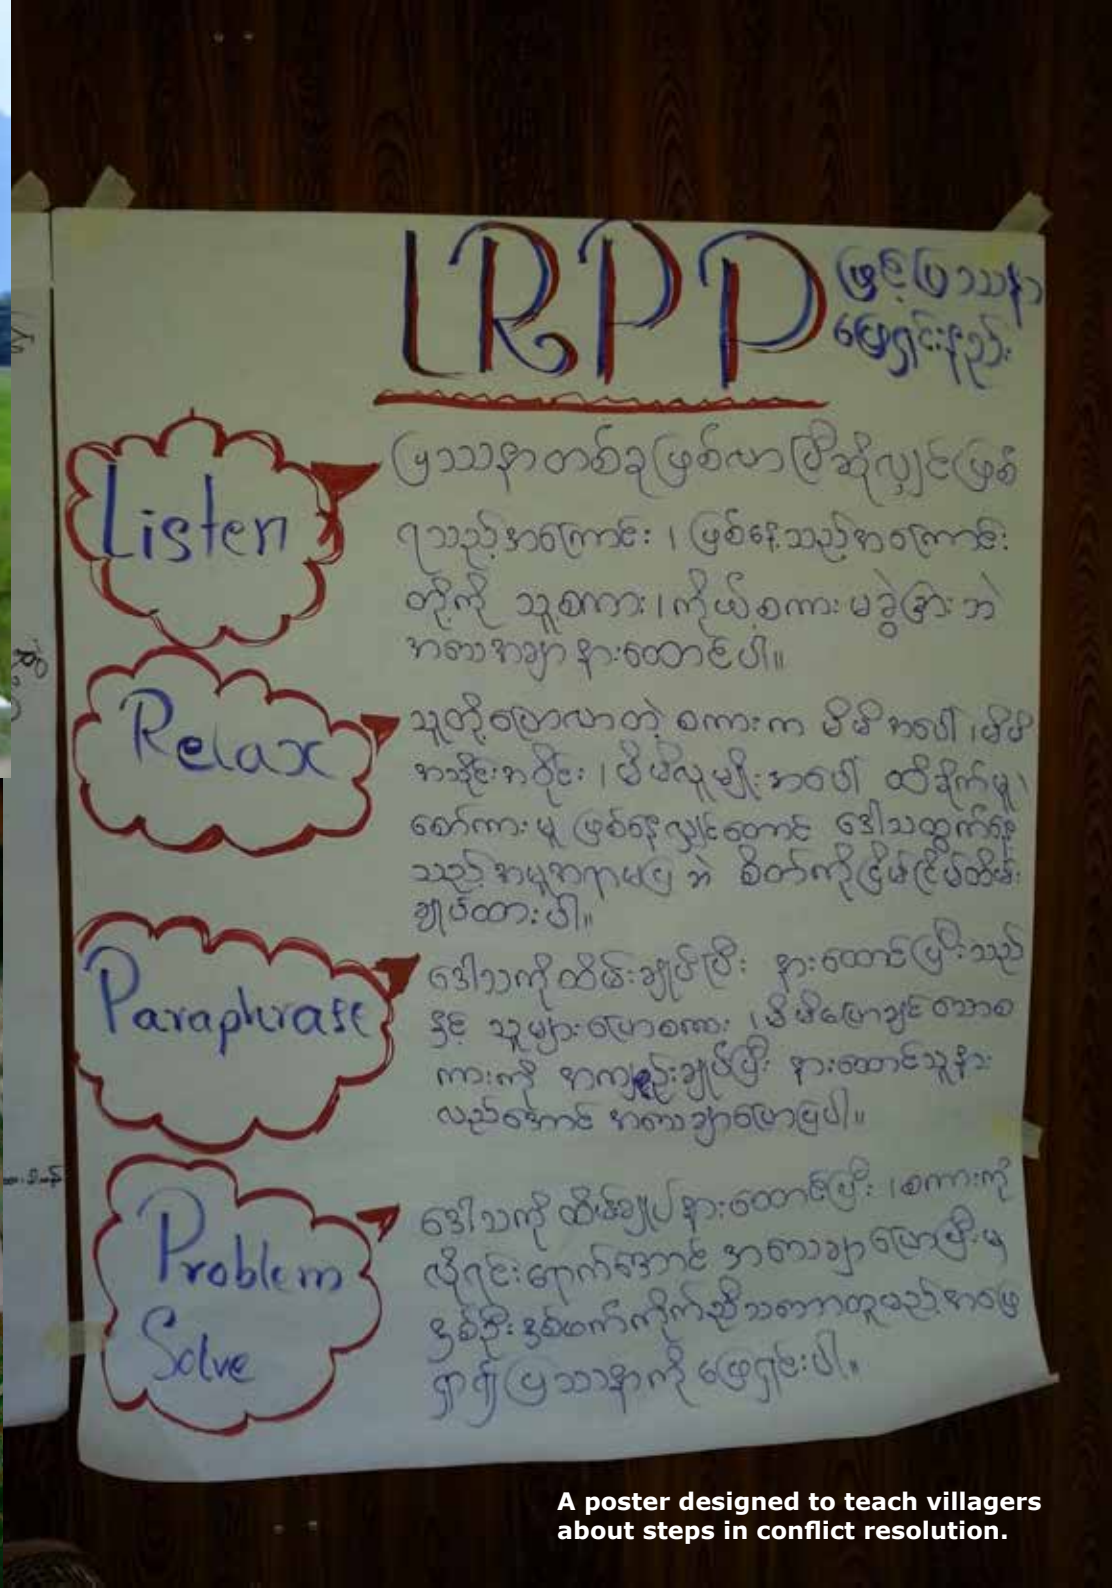 LRPP ဖြင့် ပြဿနာ
ဖြေရှင်းနည်း
Listen
ပြဿနာတစ်ခုဖြစ်လာပြီဆိုလျှင်ဖြစ်
ရသည့်အကြောင်း ၊ ဖြစ်နေသည့်အကြောင်း
တို့ကို သူ့စကား ၊ ကိုယ့်စကား မခွဲခြားဘဲ
အသေအချာ နားထောင်ပါ။
Relax
သူတို့ပြောလာတဲ့ စကားက မိမိအပေါ် ၊ မိမိ
အသိုင်းအဝိုင်း ၊ မိမိလူမျိုးအပေါ် ထိခိုက်မှု ၊
စော်ကားမှု ဖြစ်နေလျှင်တောင် ဒေါသထွက်နေ
သည့် အမူအရာမပြဘဲ စိတ်ကိုငြိမ်ငြိမ်ထိမ်း
ချုပ်ထားပါ။
Paraphrase
ဒေါသကိုထိမ်းချုပ်ပြီး နားထောင်ပြီးသည်
နှင့် သူများပြောစကား ၊ မိမိပြောချင်သောစ
ကားကို အကျဉ်းချုပ်ပြီး နားထောင်သူနား
လည်အောင် အသေချာပြောပြပါ။
Problem
Solve
ဒေါသကို ထိမ်းချုပ်နားထောင်ပြီး ၊ စကားကို
လိုရင်းရောက်အောင် အသေချာပြောပြီးမှ
နှစ်ဦးနှစ်ဖက်ကိုက်ညီသဘောတူမည့်အဖြေ
ရှာ၍ ပြဿနာကို ဖြေရှင်းပါ။
A poster designed to teach villagers
about steps in conflict resolution.